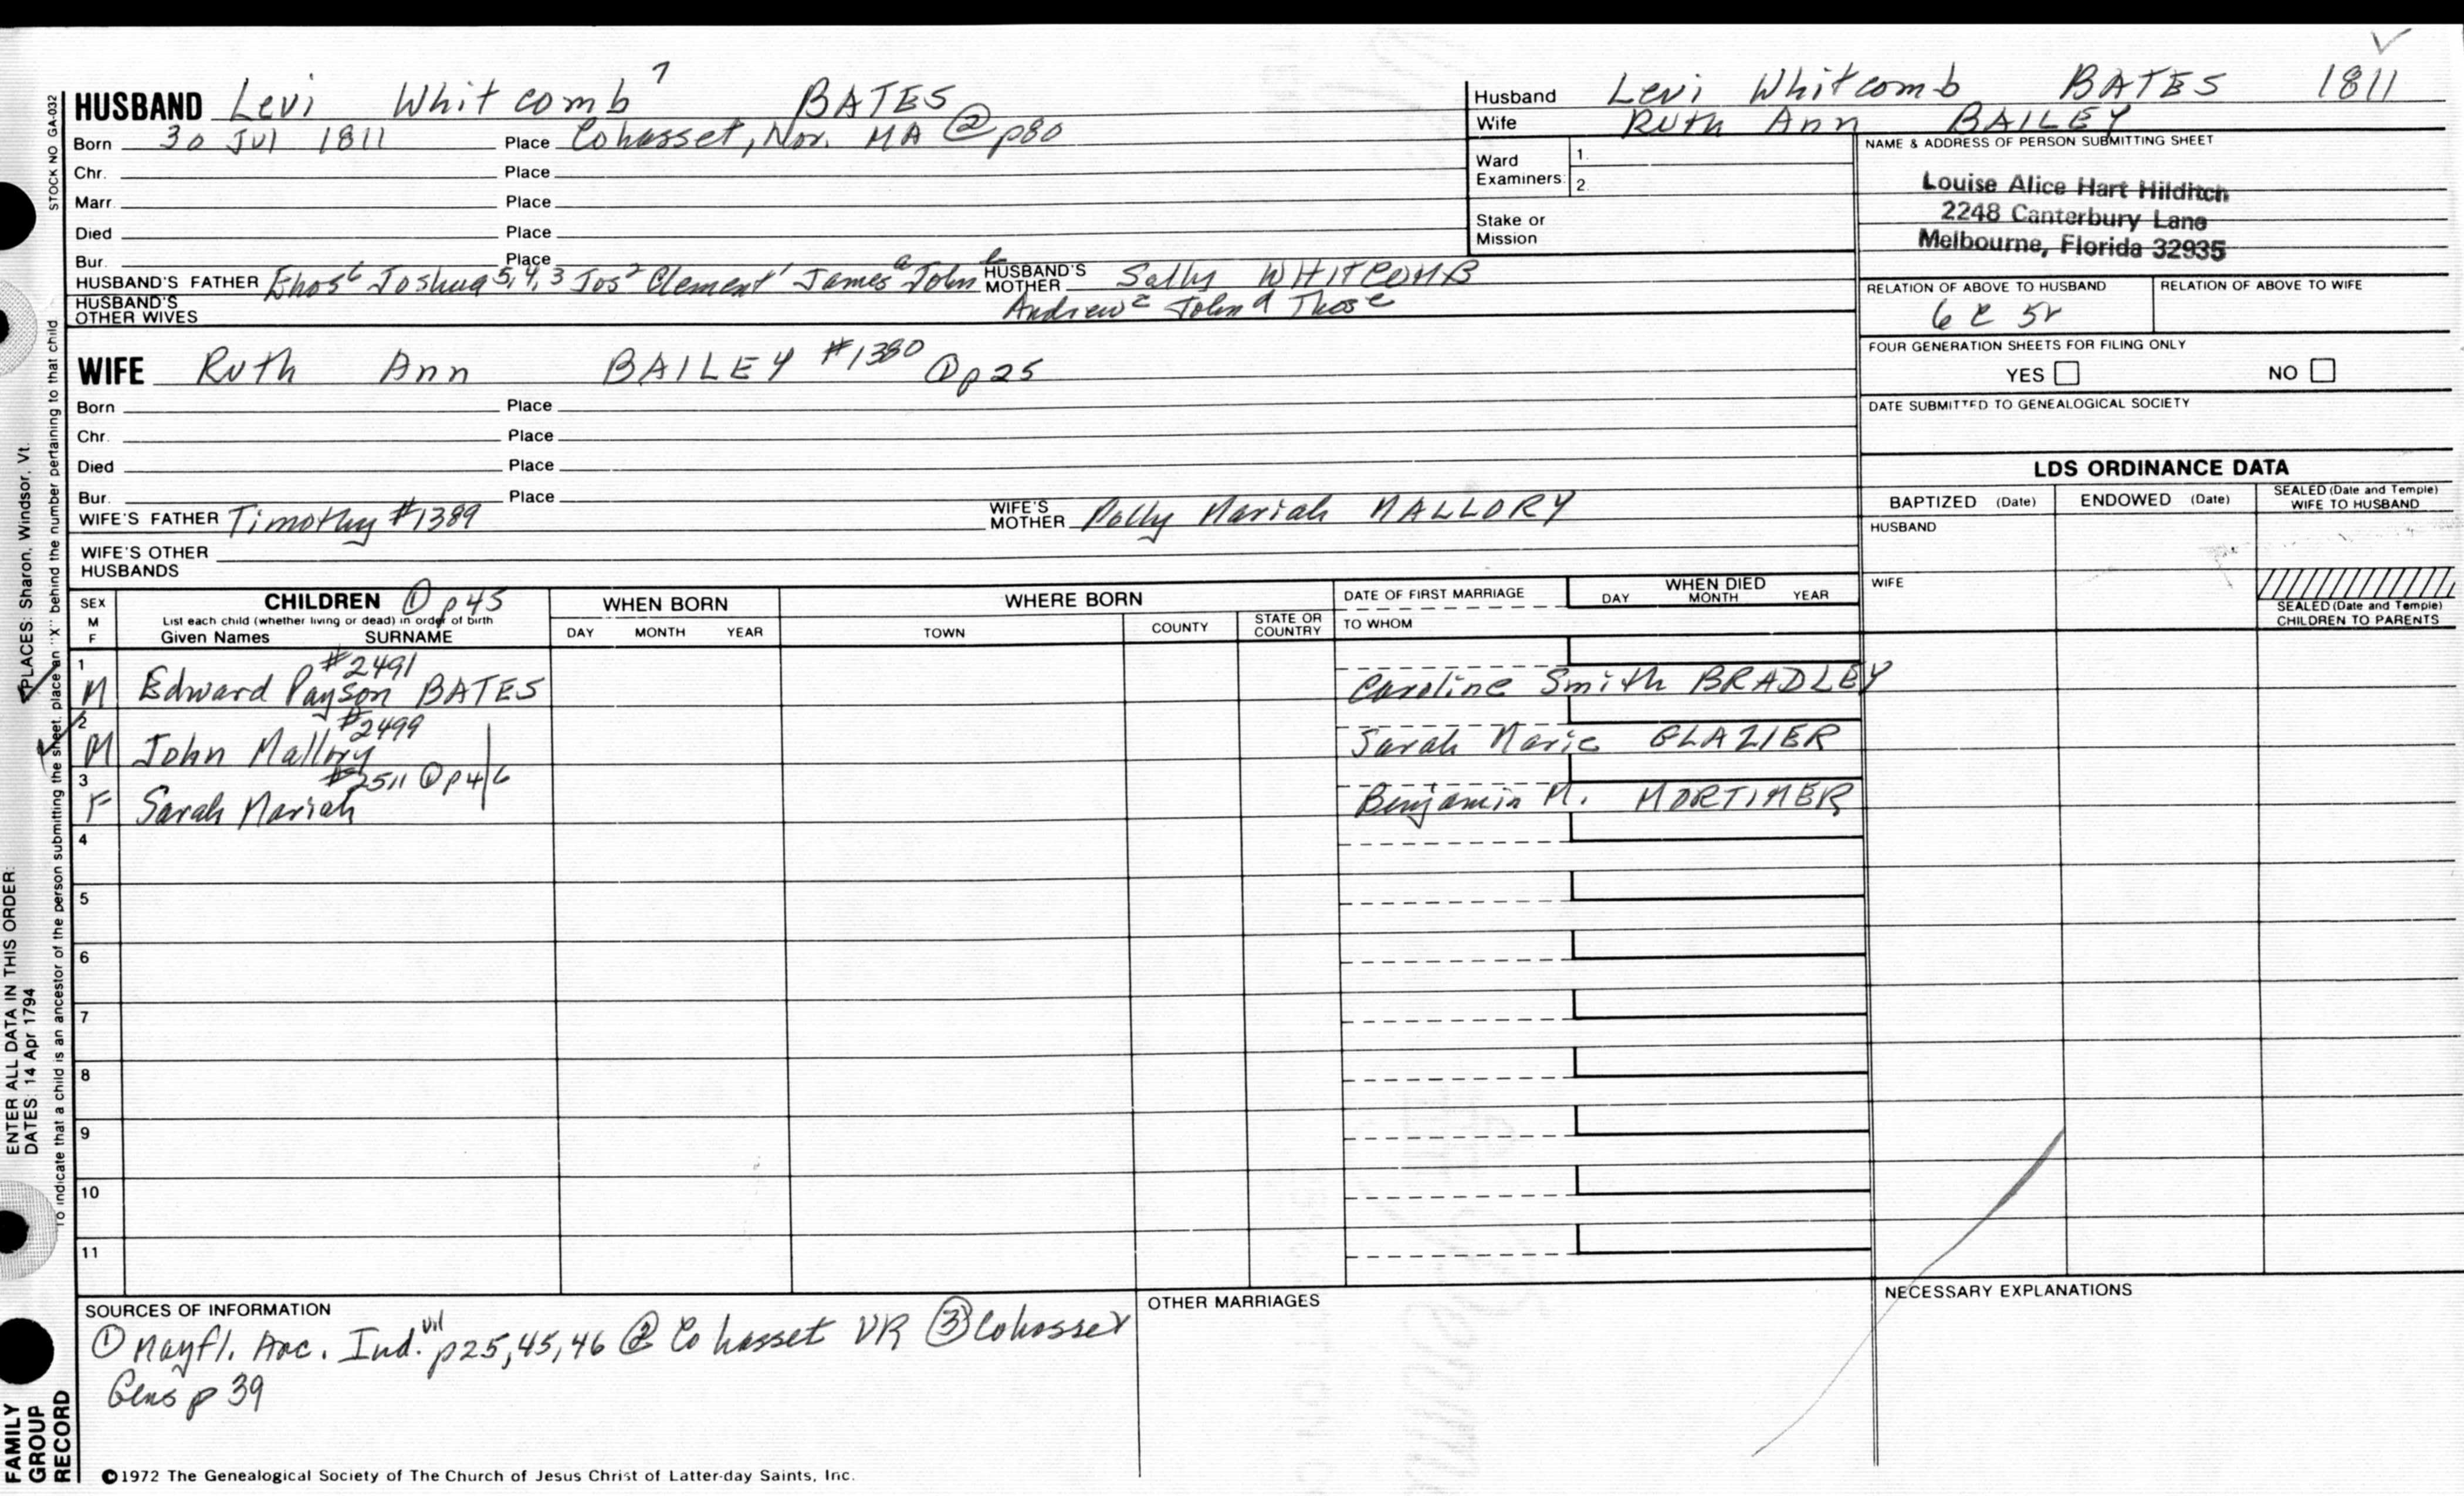 HUSBAND Levi Whitcomb 7 BATES
Born 30 Jul 1811 Place Cohasset, Nor. MA @ p80
Chr. Place
Marr. Place
Died Place
Bur. Place
HUSBAND'S FATHER 6 Joshua 5,4,3 Jos 2 Clement 1 James a John b HUSBAND'S MOTHER Sally WHITCOMB
HUSBAND'S OTHER WIVES Andrew c John d Thos e
WIFE Ruth Ann BAILEY #1380 ① p25
Born Place
Chr. Place
Died Place
Bur. Place
WIFE'S FATHER Timothy #1389 WIFE'S MOTHER Polly Mariah MALLORY
WIFE'S OTHER HUSBANDS
Husband Levi Whitcomb BATES 1811
Wife Ruth Ann BAILEY
Ward Examiners: 1. 2.
Stake or Mission
NAME & ADDRESS OF PERSON SUBMITTING SHEET
Louise Alice Hart Hilditch
2248 Canterbury Lane
Melbourne, Florida 32935
RELATION OF ABOVE TO HUSBAND RELATION OF ABOVE TO WIFE
6 C 5r
FOUR GENERATION SHEETS FOR FILING ONLY
YES NO
DATE SUBMITTED TO GENEALOGICAL SOCIETY
LDS ORDINANCE DATA
BAPTIZED (Date) ENDOWED (Date) SEALED (Date and Temple) WIFE TO HUSBAND
HUSBAND
WIFE
SEALED (Date and Temple)
CHILDREN TO PARENTS
SEX M F CHILDREN ① p45
List each child (whether living or dead) in order of birth
Given Names SURNAME
WHEN BORN
DAY MONTH YEAR
WHERE BORN
TOWN COUNTY STATE OR COUNTRY
DATE OF FIRST MARRIAGE
TO WHOM
WHEN DIED
DAY MONTH YEAR
1 #2491
M Edward Payson BATES Caroline Smith BRADLEY
2 #2499
M John Mallory Sarah Marie GLAZIER
3 #2511 ① p46
F Sarah Mariah Benjamin M. MORTIMER
4
5
6
7
8
9
10
11
SOURCES OF INFORMATION
① Mayfl. Anc. Ind. p25,45,46 @ Cohasset VR ③ Cohasset
Gens p 39
OTHER MARRIAGES
NECESSARY EXPLANATIONS
©1972 The Genealogical Society of The Church of Jesus Christ of Latter-day Saints, Inc.
STOCK NO GA-032
To indicate that a child is an ancestor of the person submitting the sheet, place an "X" behind the number pertaining to that child
ENTER ALL DATA IN THIS ORDER:
DATES: 14 Apr 1794
PLACES: Sharon, Windsor, Vt.
FAMILY
GROUP
RECORD